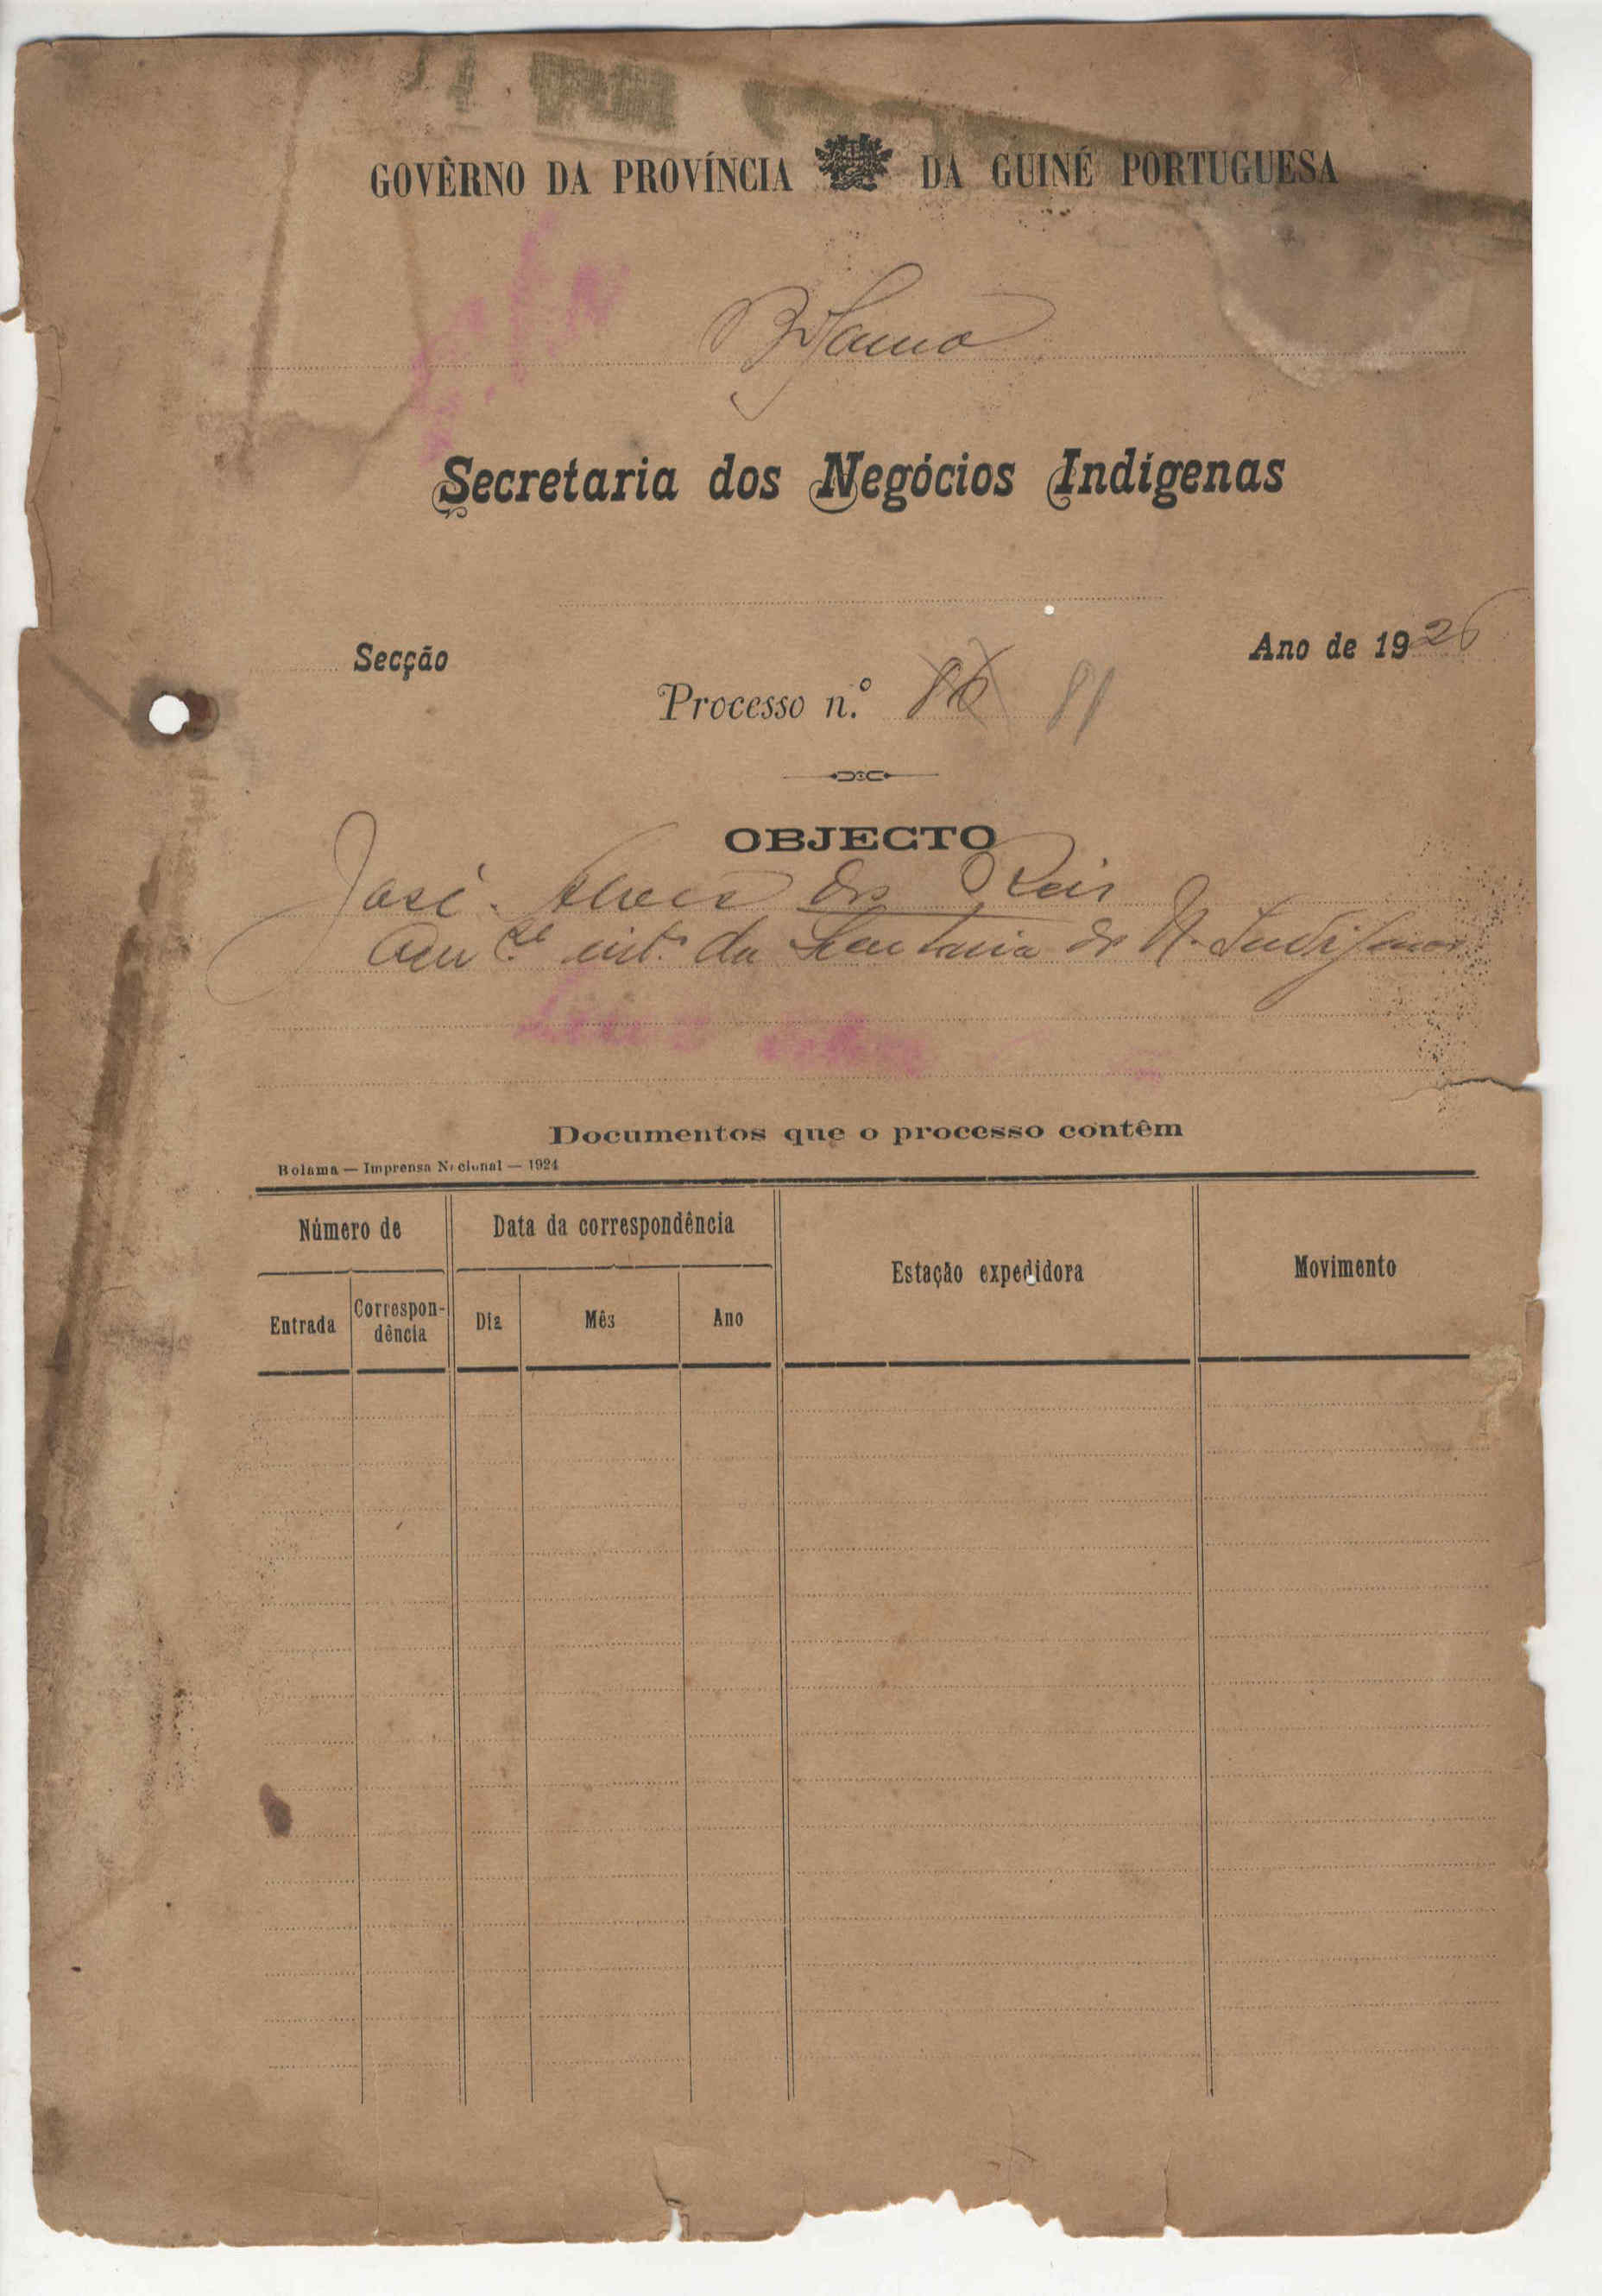 GOVÊRNO DA PROVÍNCIA DA GUINÉ PORTUGUESA
Bolama
Secretaria dos Negócios Indígenas
Secção
Ano de 1926
Processo n.º 86 81
OBJECTO
José Alves dos Reis
int.º da Secretaria dos N. Indígenas
Documentos que o processo contêm
Bolama — Imprensa Nacional — 1924
Número de Data da correspondência Estação expedidora Movimento
Entrada Correspon-
dência Dia Mês Ano